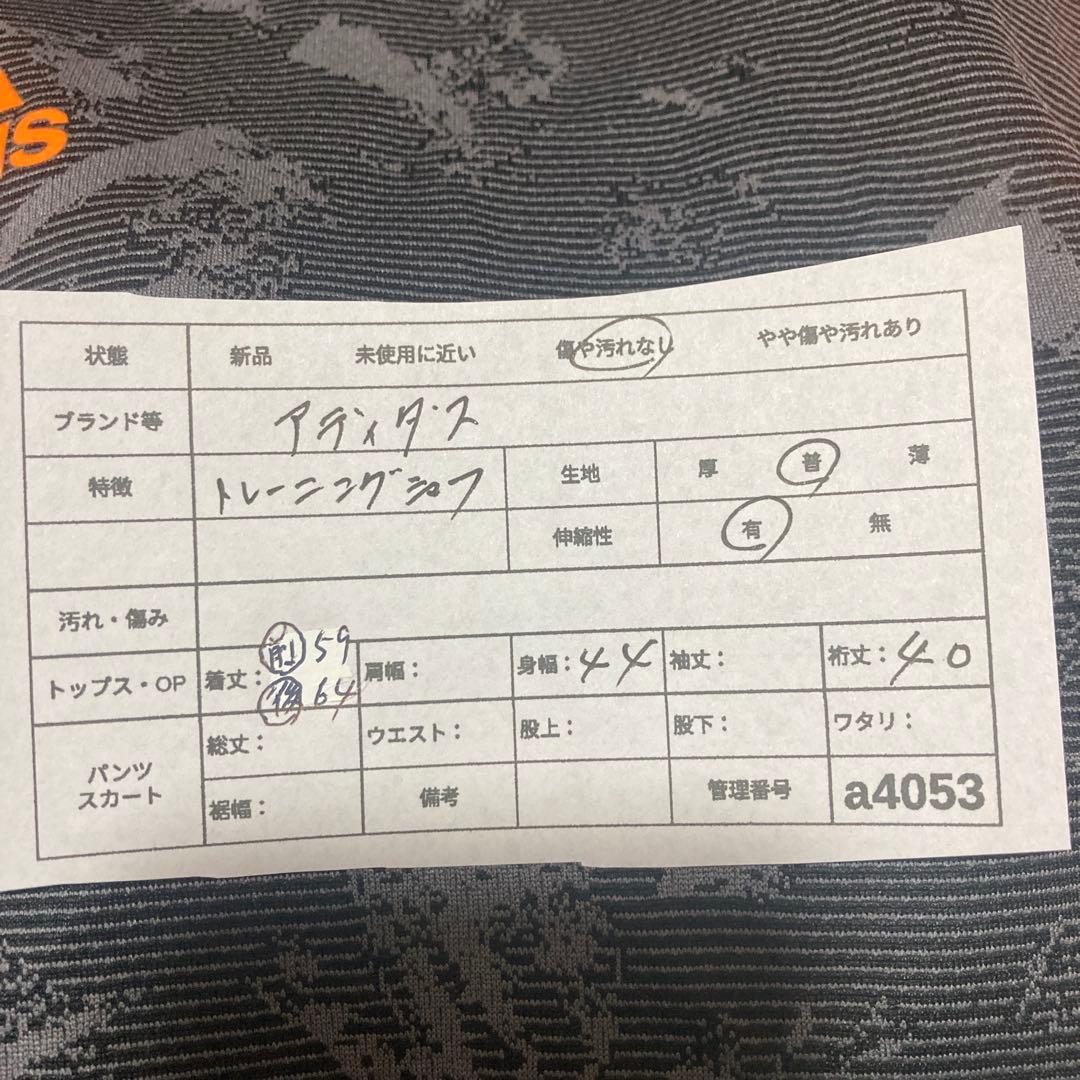 as
状態 新品 未使用に近い 傷や汚れなし やや傷や汚れあり
ブランド等 アディダス
特徴 トレーニングシャツ 生地 厚 普 薄
伸縮性 有 無
汚れ・傷み
トップス・OP 着丈: 前 59 後 64 肩幅: 身幅: 44 袖丈: 裄丈: 40
パンツ スカート 総丈: ウエスト: 股上: 股下: ワタリ:
裾幅: 備考 管理番号 a4053